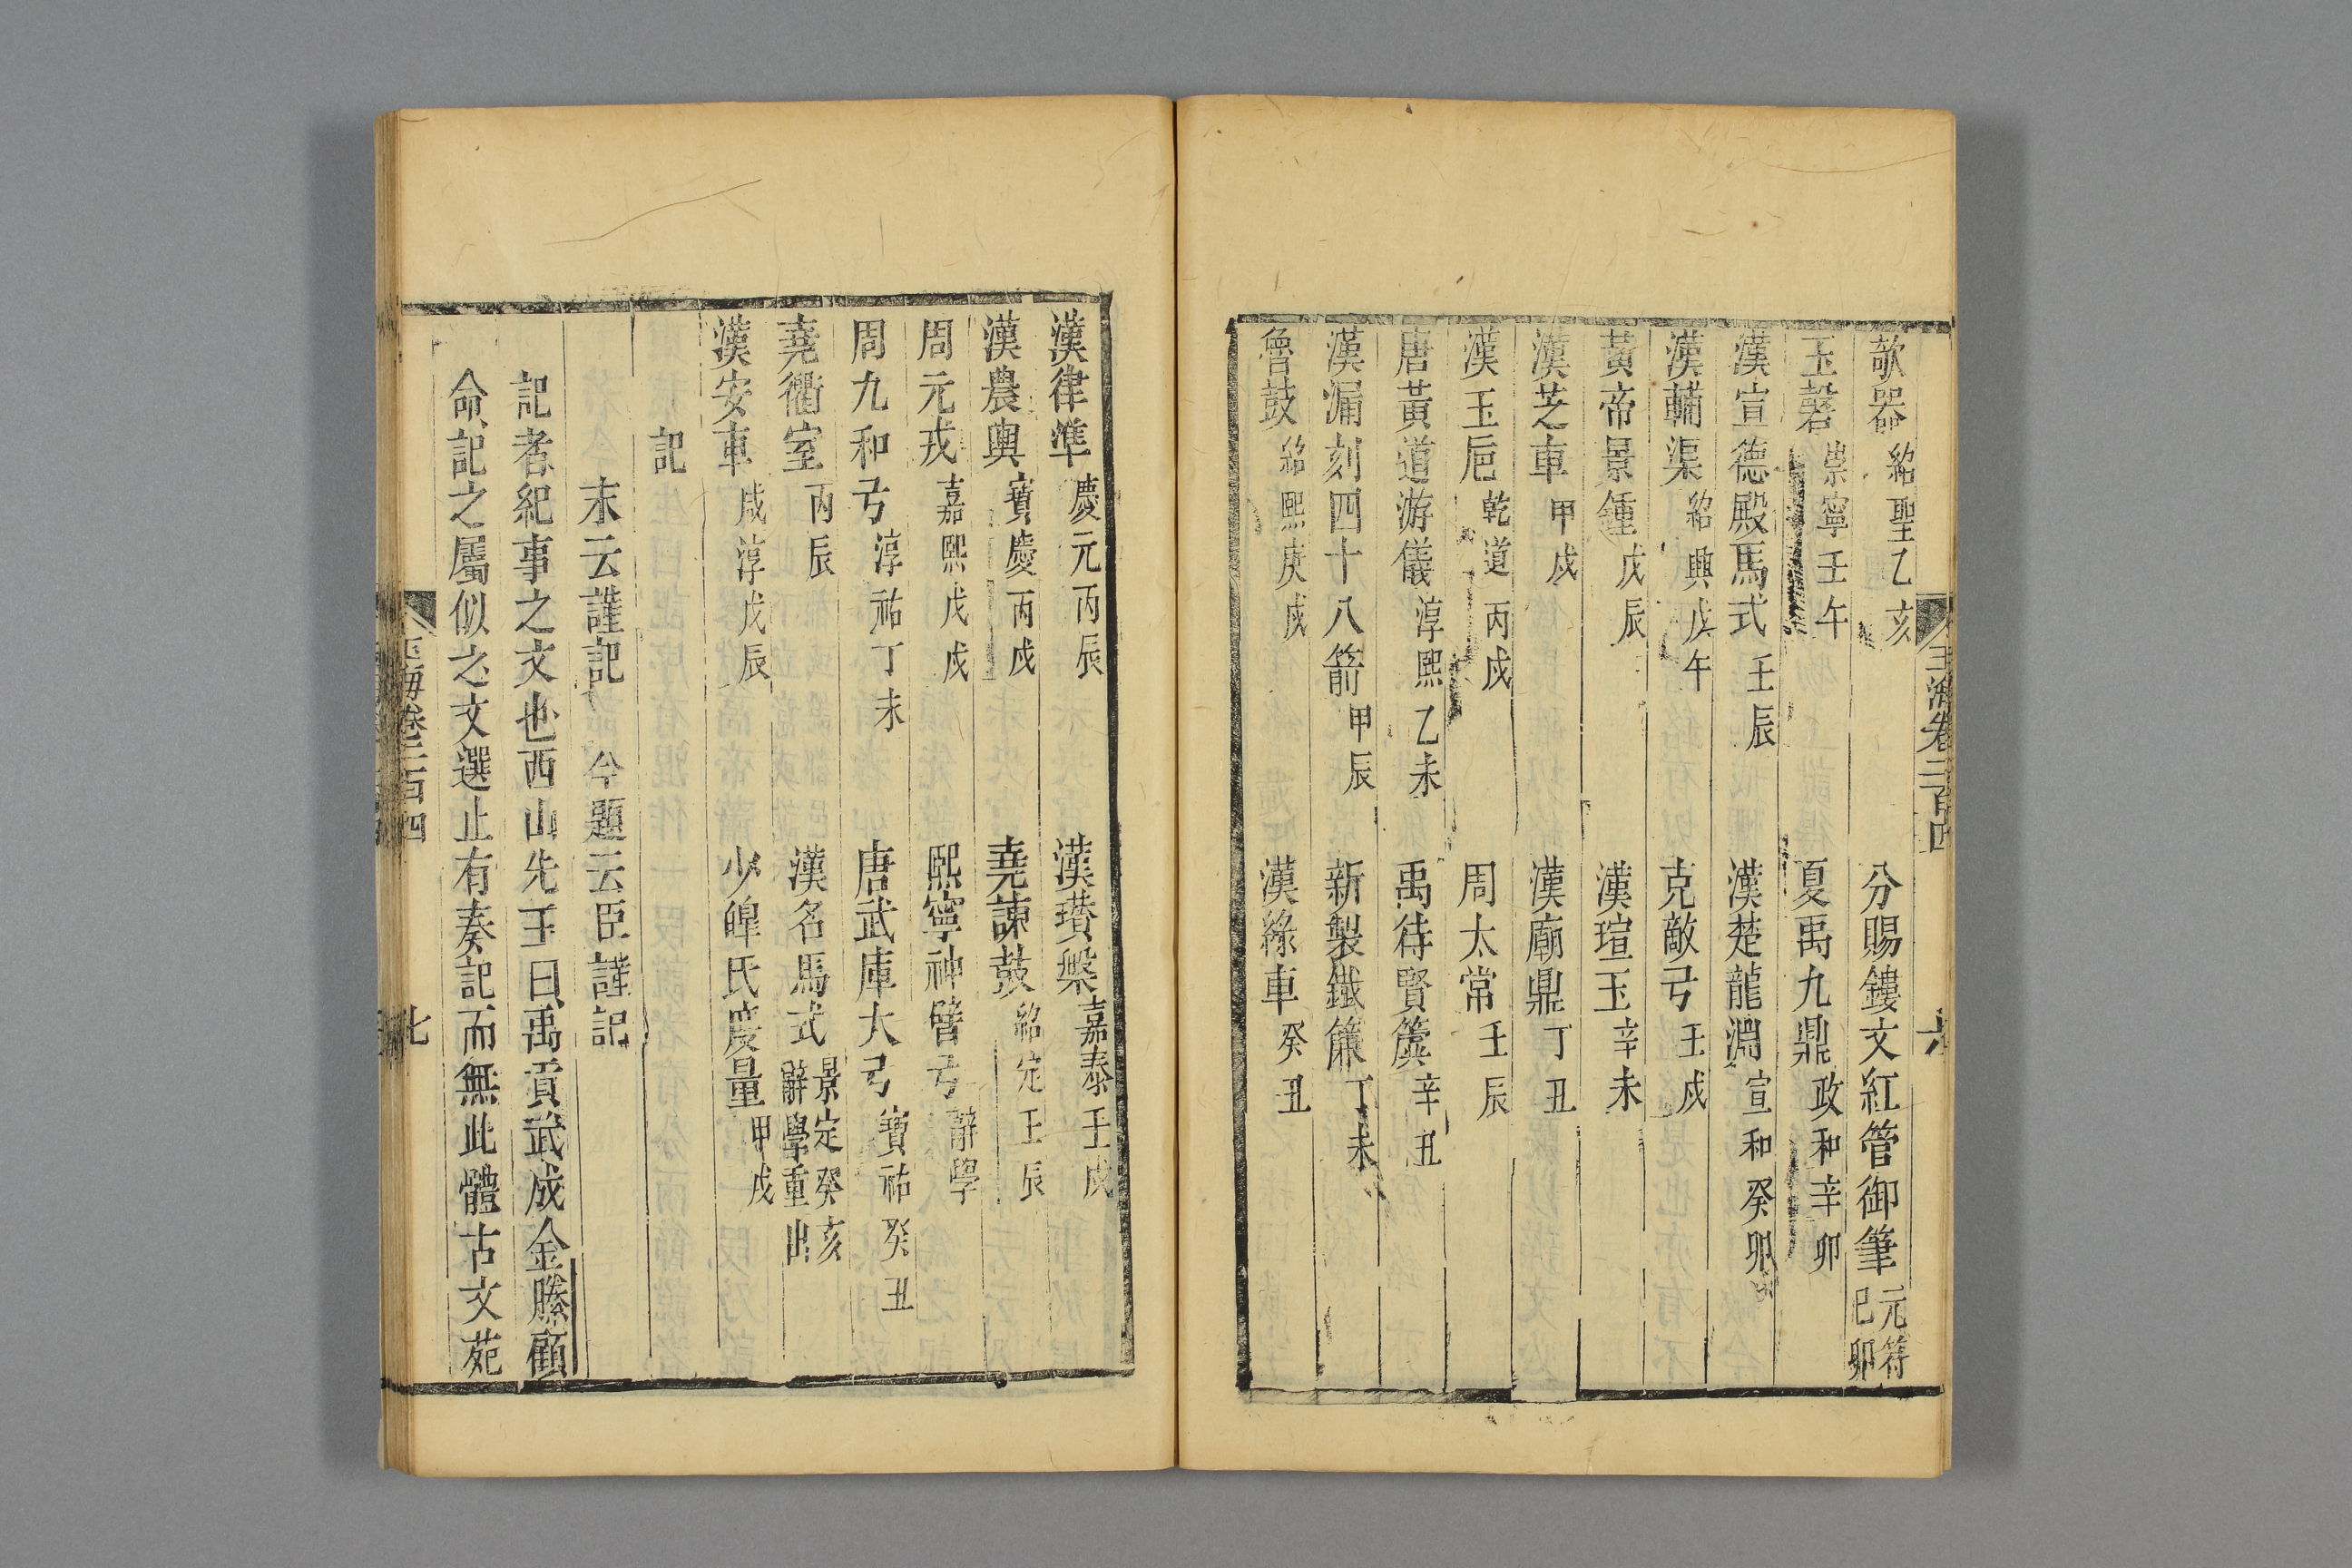 欹器紹聖乙亥 分賜鏤文紅管御筆元符己卯
玉磬崇寧壬午 夏禹九鼎政和辛卯
漢宣德殿馬式壬辰 漢楚龍淵宣和癸卯
漢輔渠紹興戊午 克敵弓壬戌
黃帝景鍾戊辰 漢瑄玉辛未
漢芝車甲戌 漢廟鼎丁丑
漢玉巵乾道丙戌 周太常壬辰
唐黃道游儀淳熙乙未 禹待賢簴辛丑
漢漏刻四十八箭甲辰 新製鐵簾丁未
魯鼓紹熙庚戌 漢綠車癸丑
玉海卷二百四 六
漢律準慶元丙辰 漢瓚槃嘉泰壬戌
漢農輿寶慶丙戌 堯諫鼓紹定壬辰
周元戎嘉熙戊戌 熙寧神臂弓辭學
周九和弓淳祐丁未 唐武庫大弓寶祐癸丑
堯衢室丙辰 漢名馬式景定癸亥辭學重出
漢安車咸淳戊辰 少皥氏度量甲戌
記
末云謹記 今題云臣謹記
記者紀事之文也西山先王曰禹貢武成金縢顧
命記之屬似之文選止有奏記而無此體古文苑
玉海卷二百四 七